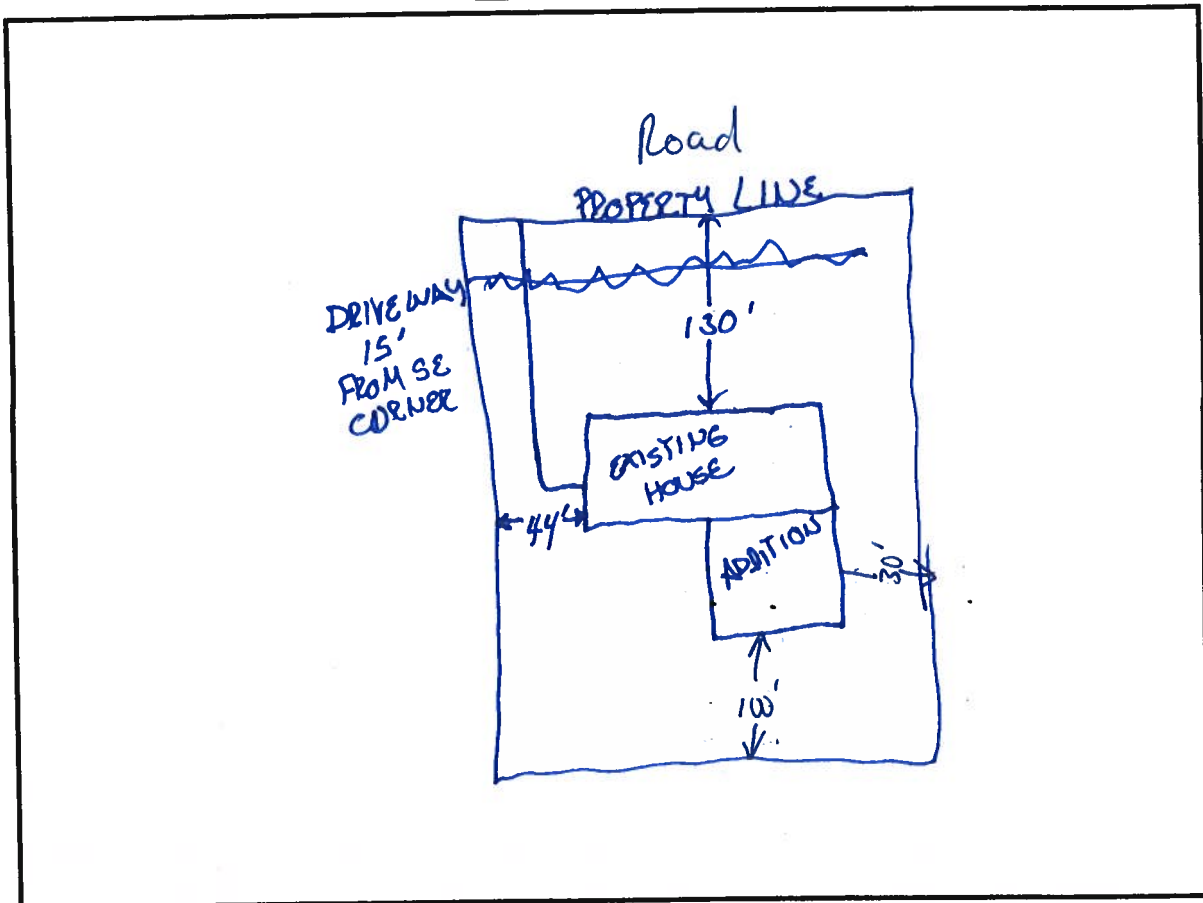 Road
PROPERTY LINE
DRIVEWAY
15'
FROM SE
CORNER
130'
EXISTING
HOUSE
44'
ADDITION
30'
100'